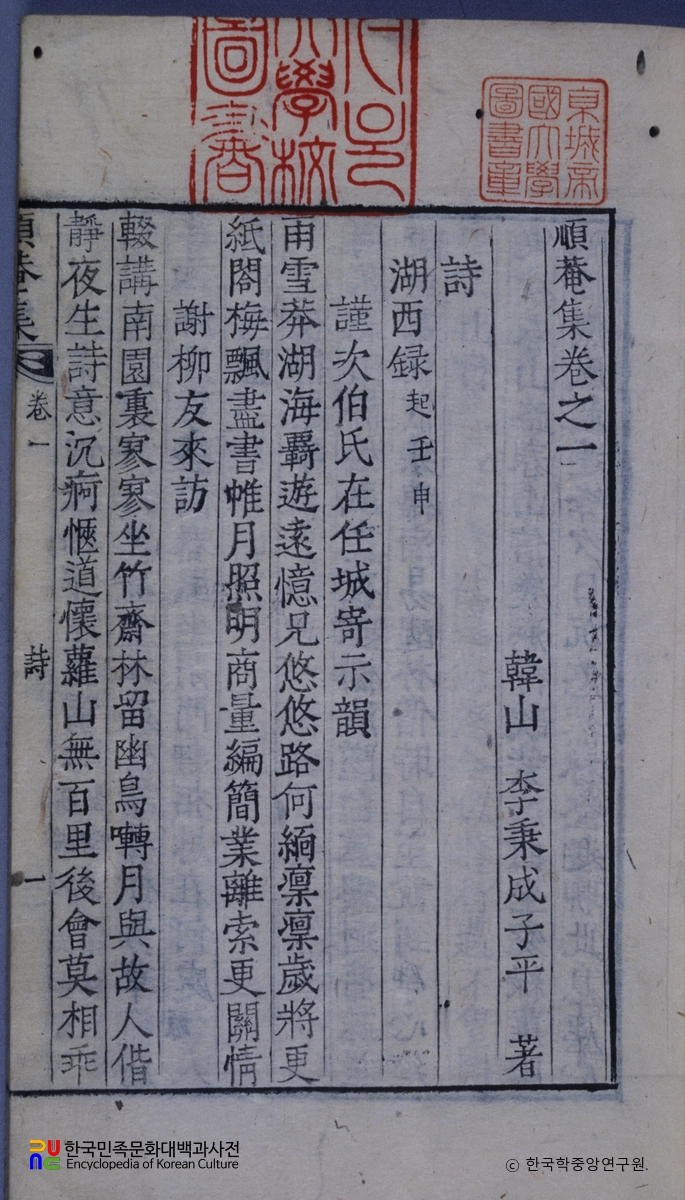 東城帝
國大學
圖書章
順菴集卷之一
韓山 李秉成子平 著
詩
湖西録 起壬申
謹次伯氏在任城寄示韻
雨雪莽湖海覊遊遠憶兄悠悠路何緬凛凛歲將更
紙閣梅飄盡書帷月照明商量編簡業離索更關情
謝柳友來訪
輟講南園裏寥寥坐竹齋林留幽鳥囀月與故人偕
靜夜生詩意沉痾愜道懷蘿山無百里後會莫相乖
順菴集 卷一 詩 一
한국민족문화대백과사전
Encyclopedia of Korean Culture
© 한국학중앙연구원.